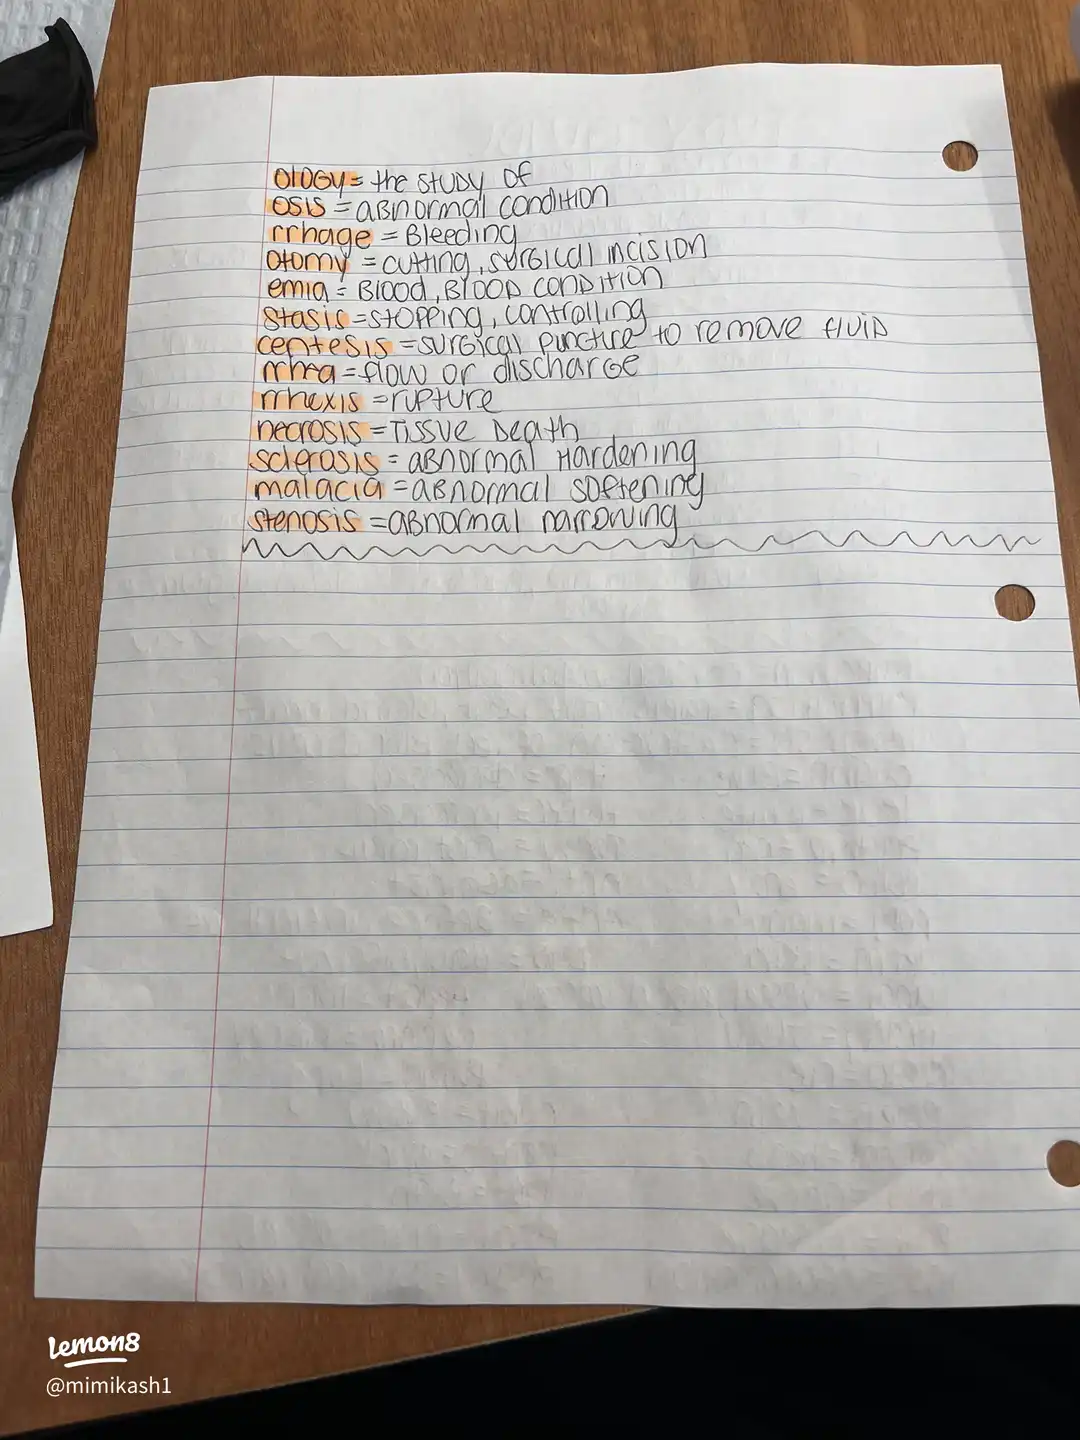 ology = the study of
osis = abnormal condition
rrhage = Bleeding
otomy = cutting, surgical incision
emia = Blood, Blood condition
stasis = stopping, controlling
centesis = surgical puncture to remove fluid
rrhea = flow or discharge
rrhexis = rupture
necrosis = Tissue Death
sclerosis = abnormal Hardening
malacia = abnormal softening
stenosis = abnormal narrowing
lemon8
@mimikash1